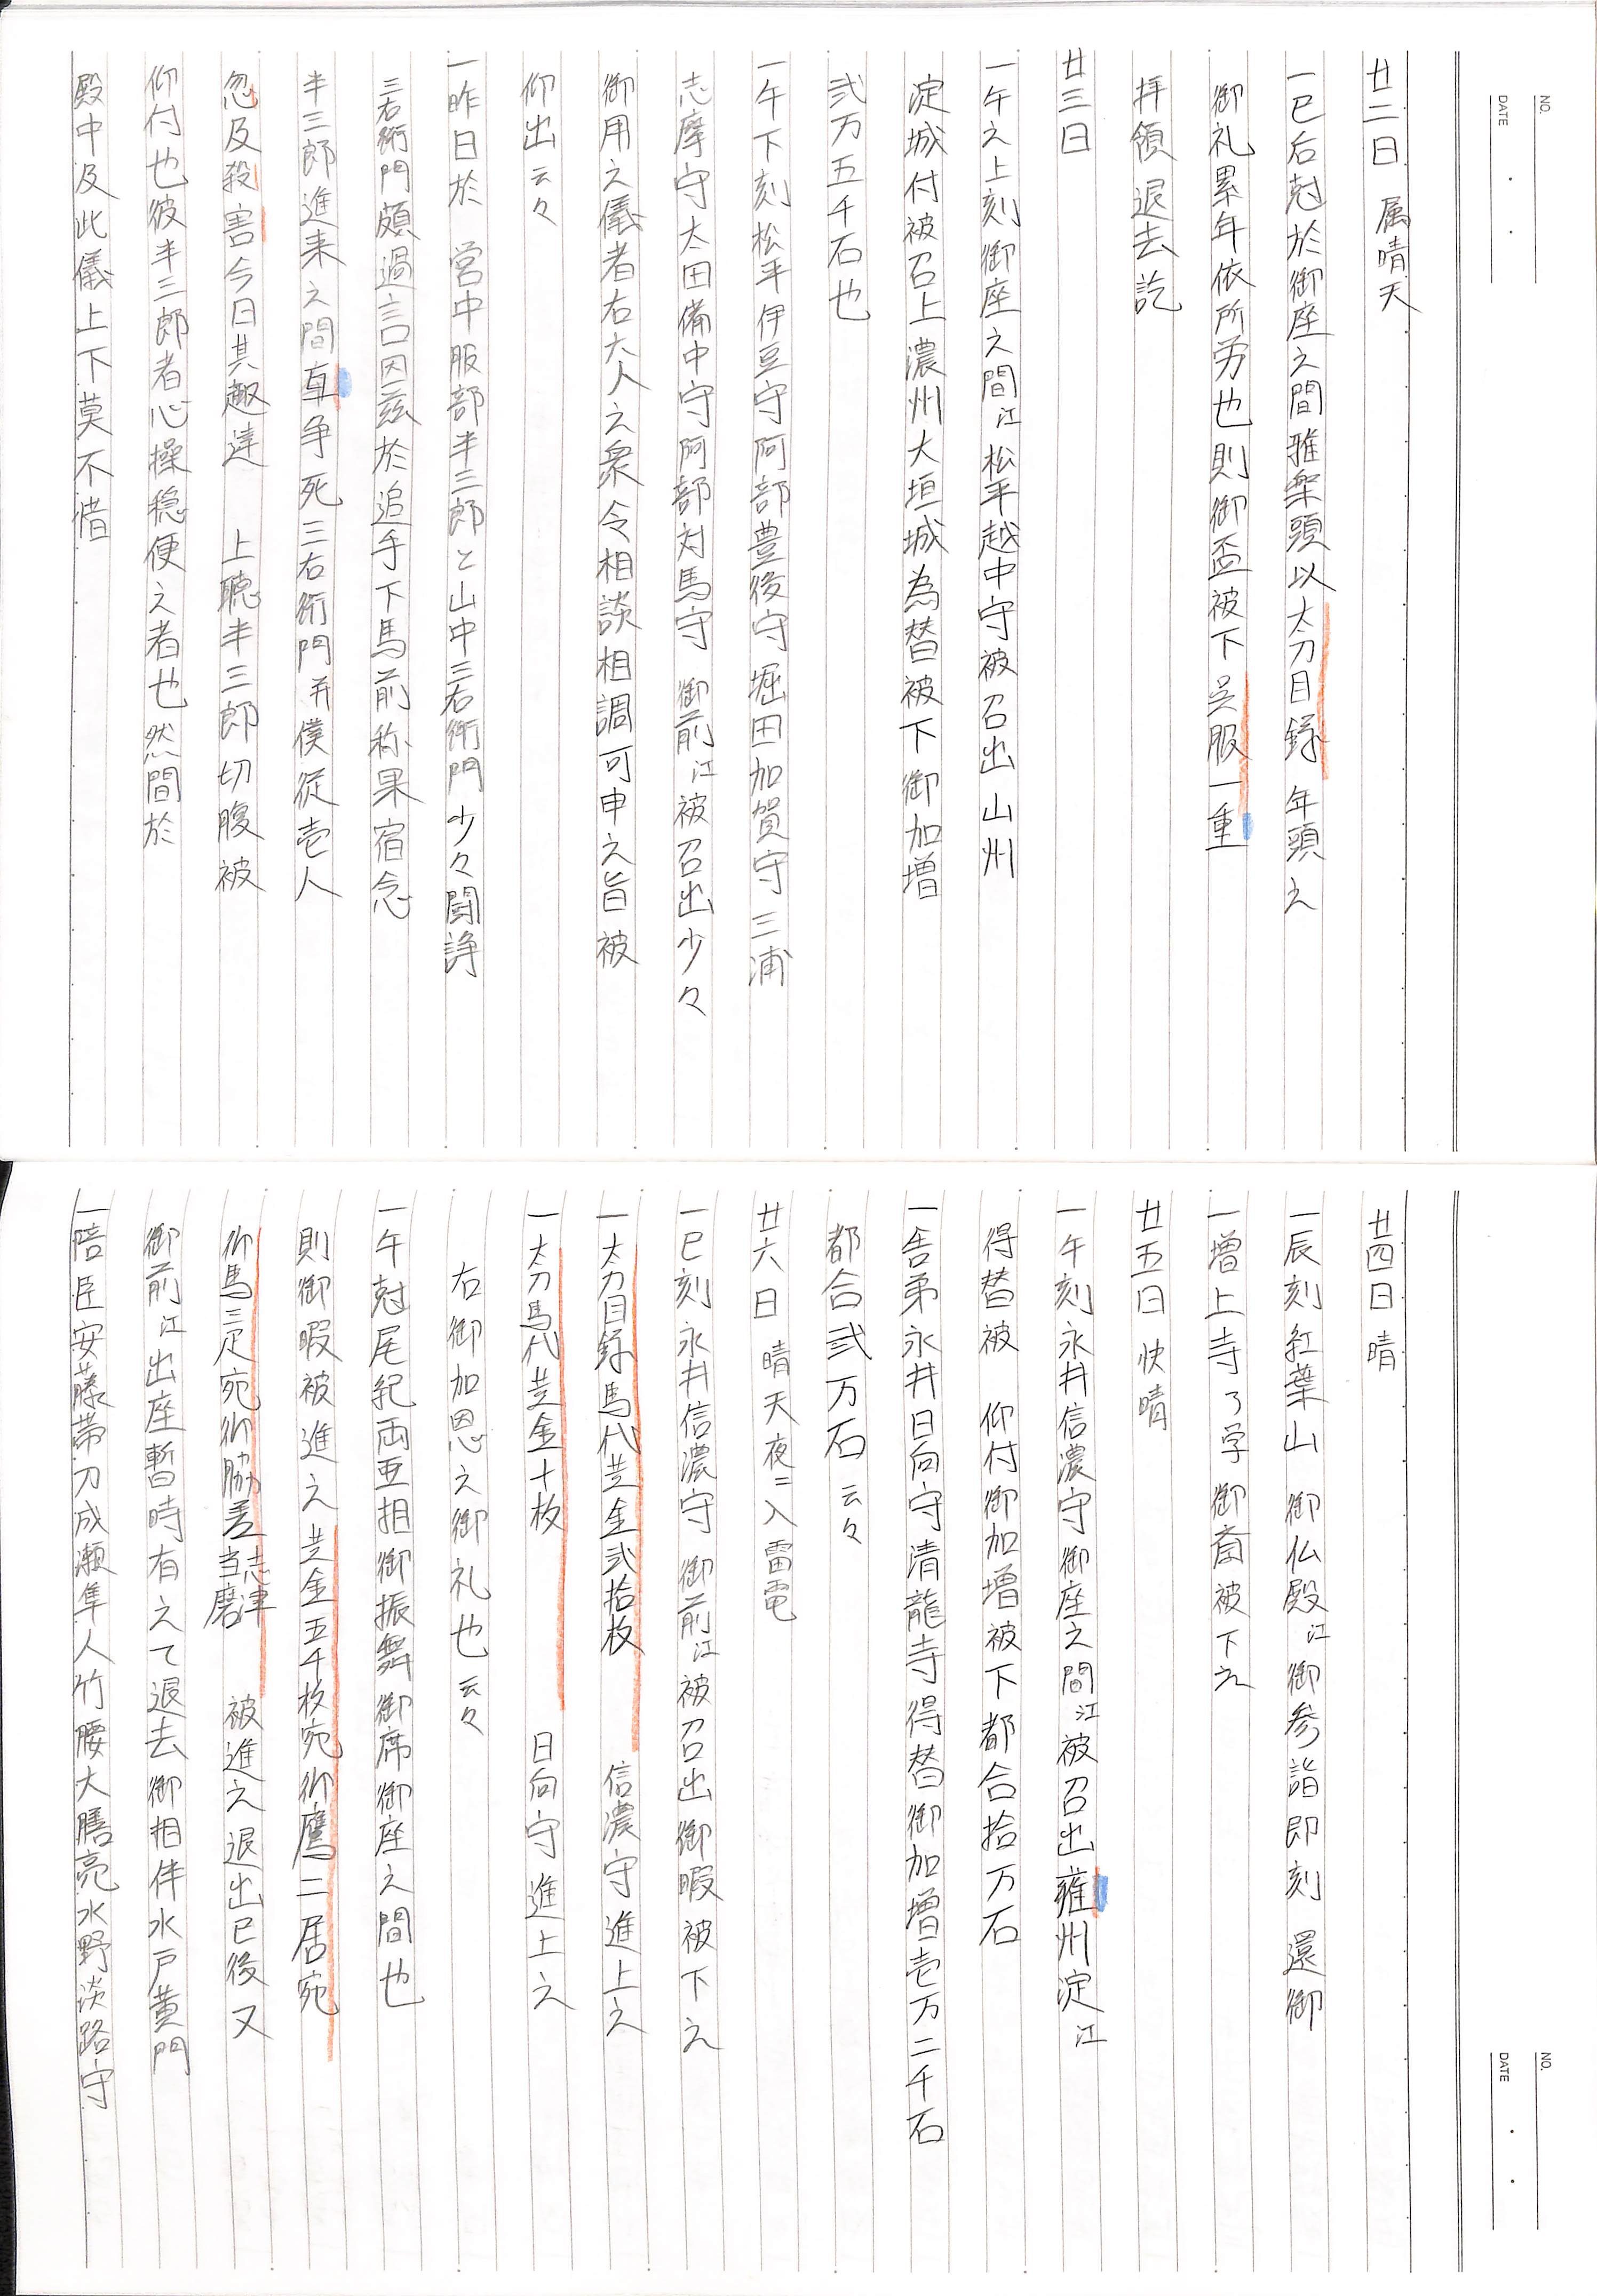 NO.
DATE
廿二日 属晴天
一巳后尅於御座之間雅楽頭以太刀目録 年頭之
御礼累年依所労也則御盃被下呉服一重
拝領退去訖
廿三日
一午之上刻御座之間江松平越中守被召出 山州
淀城付被召上濃州大垣城為替被下 御加増
弐万五千石也
一午下刻松平伊豆守阿部豊後守堀田加賀守三浦
志摩守太田備中守阿部対馬守 御前江被召出少々
御用之儀者右六人之衆令相談相調可申之旨被
仰出云々
一昨日於 営中服部半三郎と山中三右衛門少々闘諍
三右衛門頗過言因茲於追手下馬前称果宿念
半三郎進来之間互争死三右衛門并僕従壱人
忽及殺害今日其趣達 上聴半三郎切腹被
仰付也彼半三郎者心操穏便之者也然間於
殿中及此儀上下莫不惜
NO.
DATE
廿四日 晴
一辰刻紅葉山 御仏殿江御参詣即刻 還御
一増上寺了学 御斎被下之
廿五日 快晴
一午刻永井信濃守御座之間江被召出雍州淀江
得替被 仰付御加増被下都合拾万石
一舎弟永井日向守清龍寺得替御加増壱万二千石
都合弐万石云々
廿六日 晴天夜ニ入雷電
一巳刻永井信濃守 御前江被召出御暇被下之
一太刀目録馬代黄金弐拾枚 信濃守進上之
一太刀馬代黄金十枚 日向守進上之
右御加恩之御礼也云々
一午尅尾紀両亜相御振舞御席御座之間也
則御暇被進之黄金五千枚宛御鷹二居宛
御馬三疋宛御脇差志津当磨 被進之退出巳後又
御前江出座暫時有之て退去御相伴水戸黄門
一陪臣安藤帯刀成瀬隼人竹腰大膳亮水野淡路守